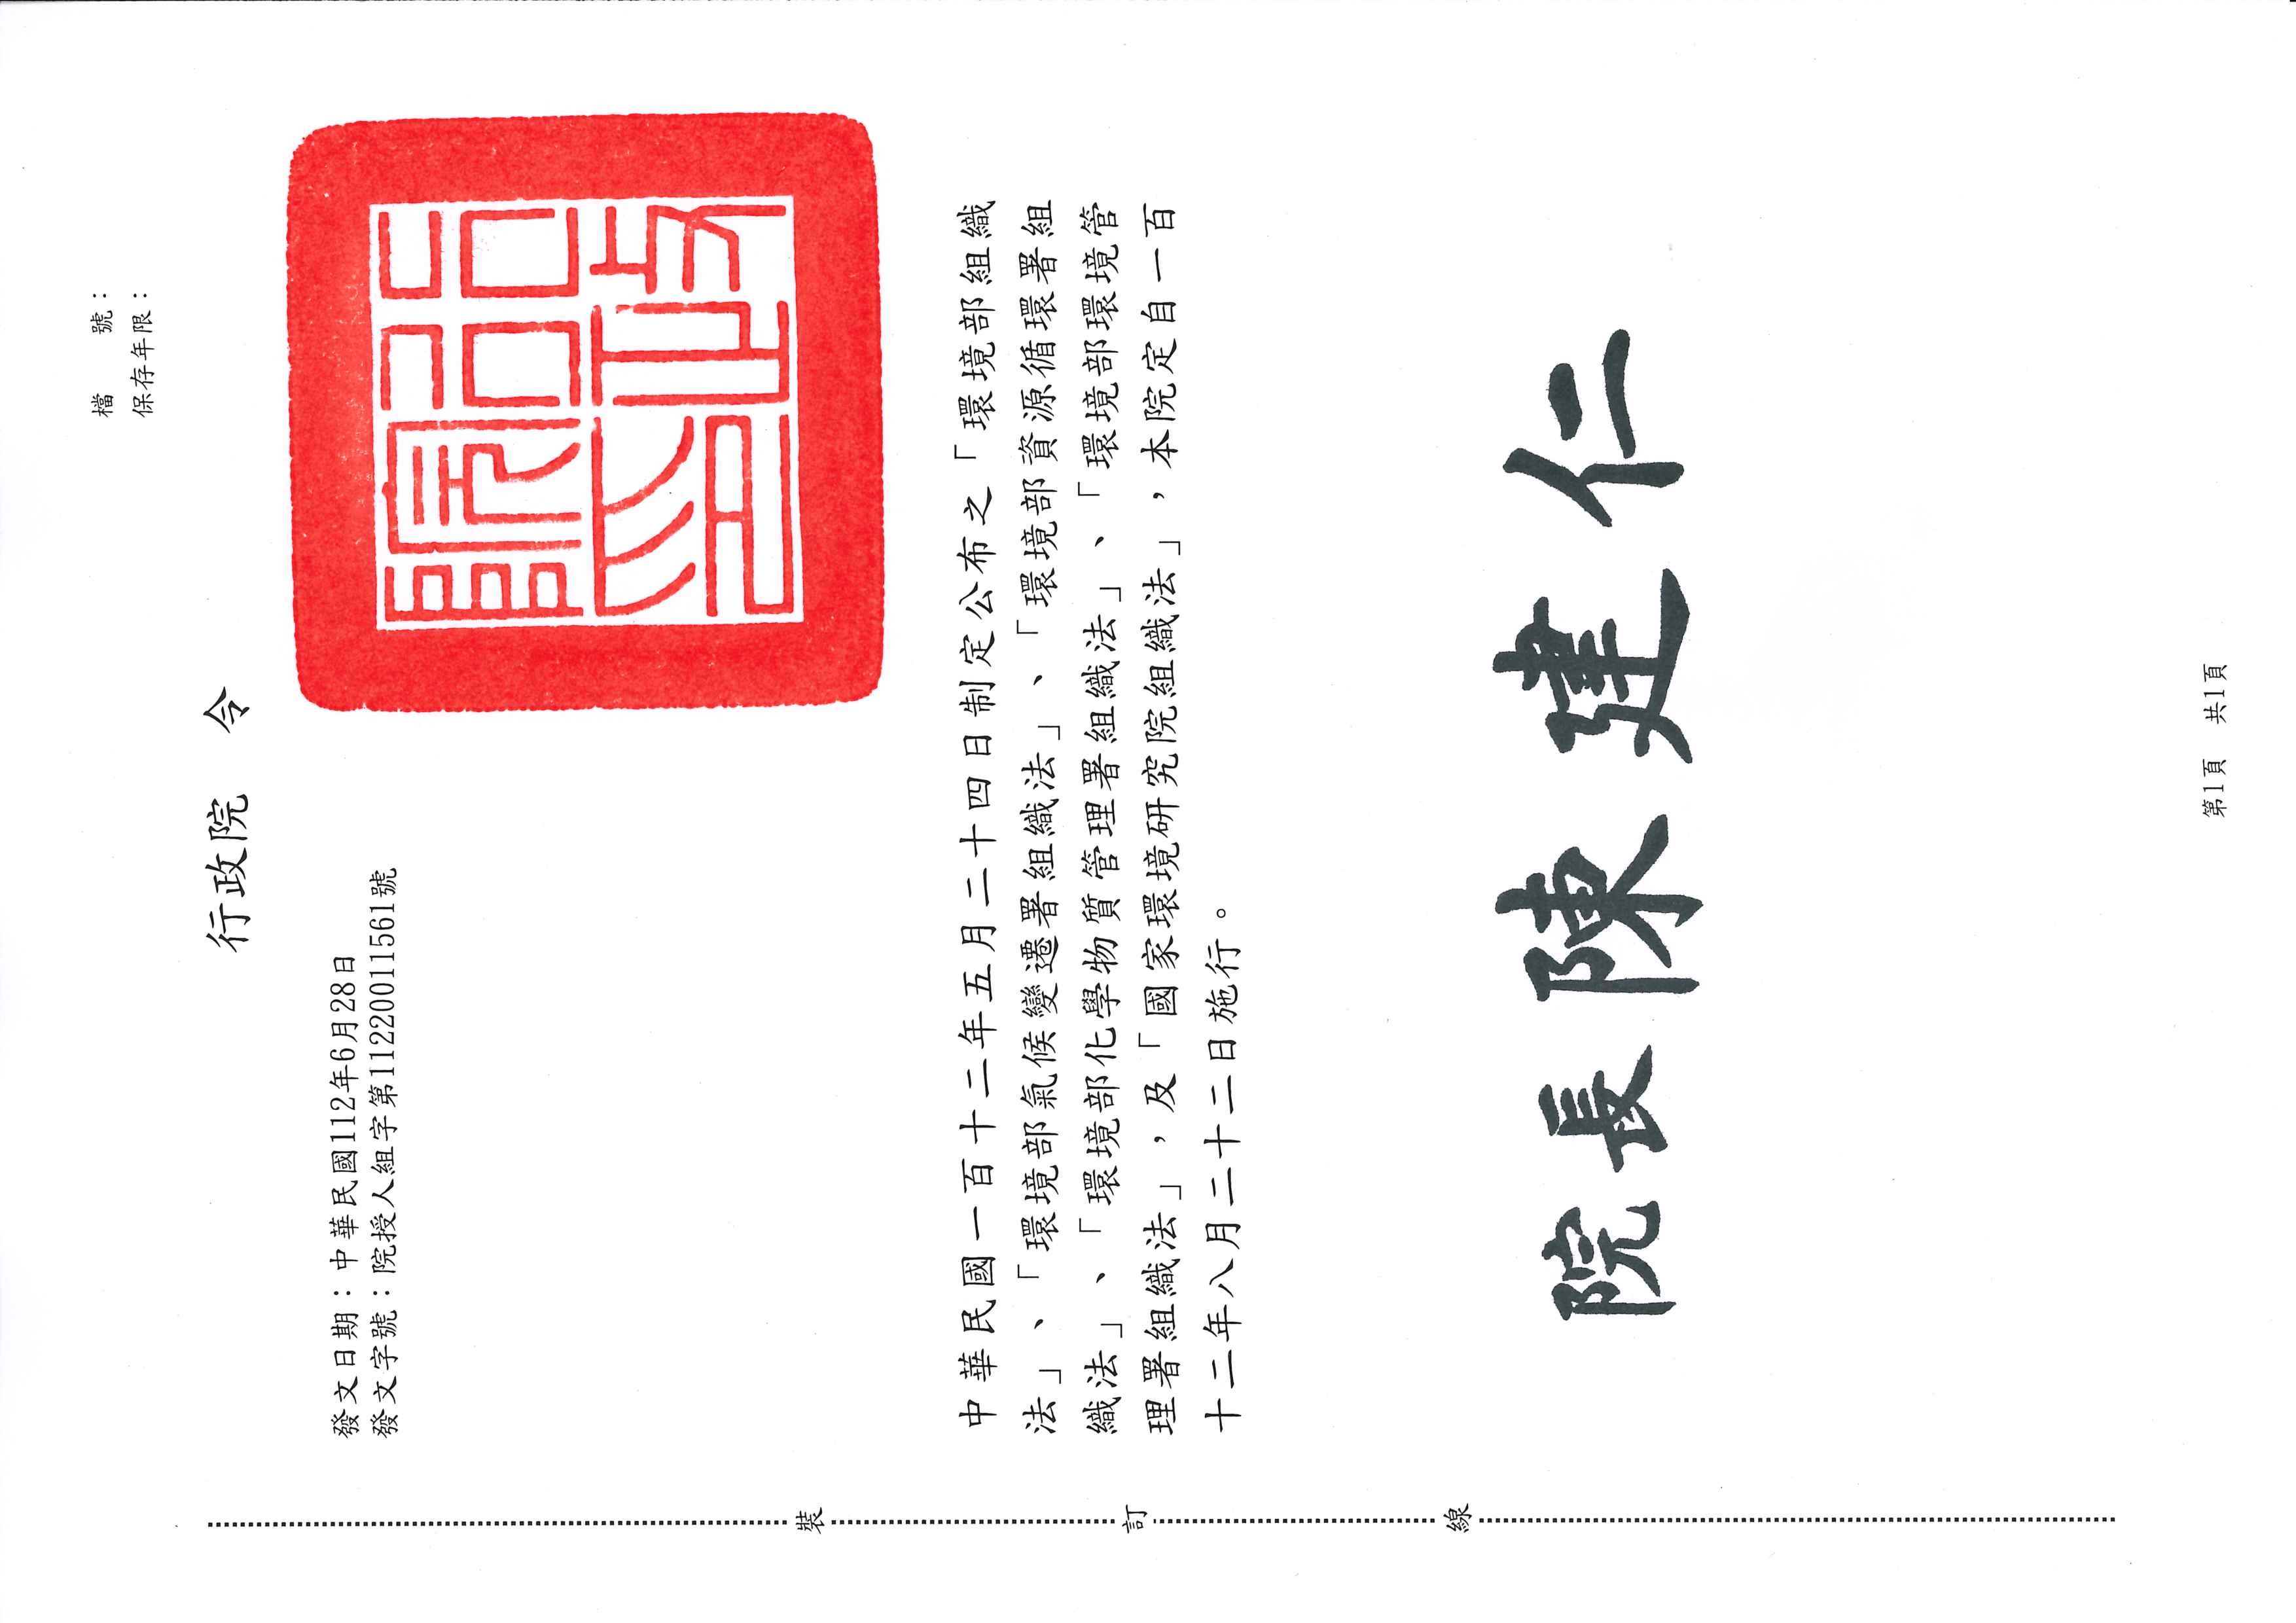 檔　　號：
保存年限：
行政院　令
發文日期：中華民國112年6月28日
發文字號：院授人組字第11220011561號
中華民國一百十二年五月二十四日制定公布之「環境部組織
法」、「環境部氣候變遷署組織法」、「環境部資源循環署組
織法」、「環境部化學物質管理署組織法」、「環境部環境管
理署組織法」，及「國家環境研究院組織法」，本院定自一百
十二年八月二十二日施行。
院長陳建仁
裝
訂
線
第1頁　共1頁